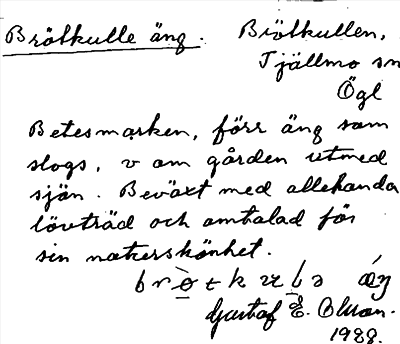 Brötkulle äng.
Brötkullen,
Tjällmo sn
Ögl
Betesmarken, förr äng som
slogs, v om gården utmed
sjön. Beväxt med allehanda
lövträd och omtalad för
sin naturskönhet.
Gustaf E.
1988.